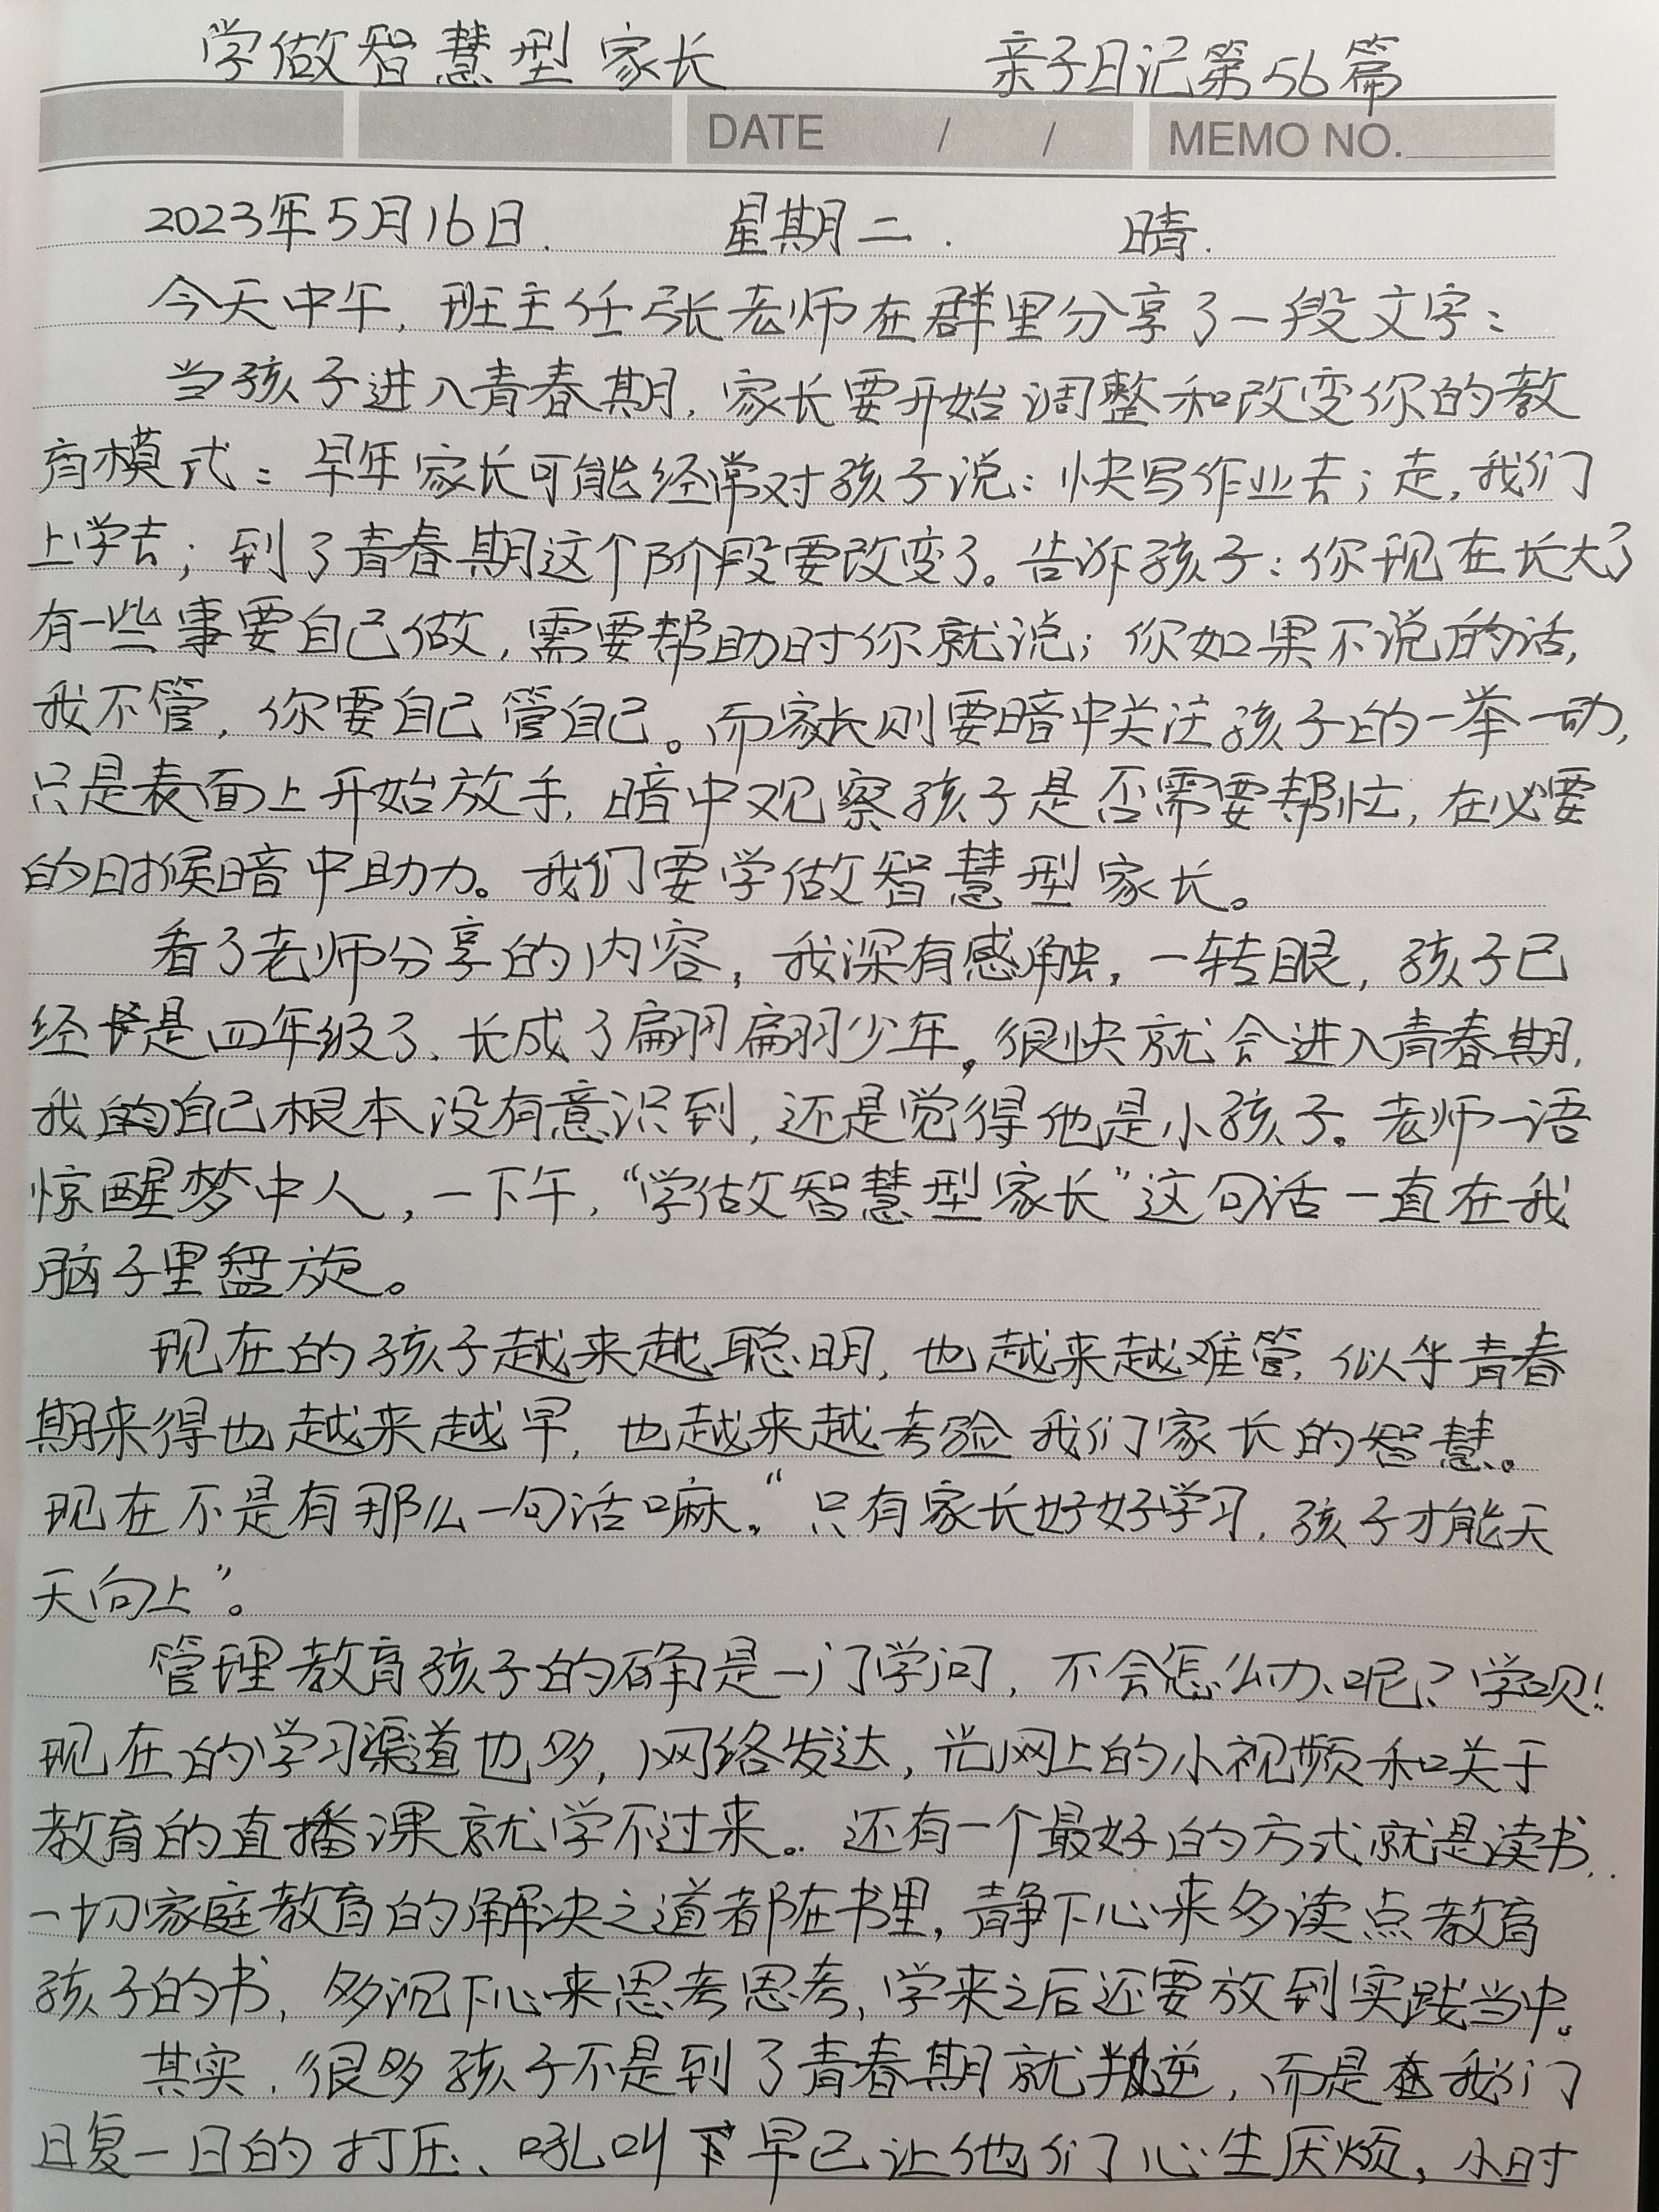 学做智慧型家长 亲子日记第56篇
DATE / / MEMO NO.
2023年5月16日. 星期二. 晴.
今天中午,班主任张老师在群里分享了一段文字:
当孩子进入青春期,家长要开始调整和改变你的教
育模式:早年家长可能经常对孩子说:快写作业去;走,我们
上学去;到了青春期这个阶段要改变了。告诉孩子:你现在长大了
有一些事要自己做,需要帮助时你就说;你如果不说的话,
我不管,你要自己管自己。而家长则要暗中关注孩子的一举一动,
只是表面上开始放手,暗中观察孩子是否需要帮忙,在必要
的时候暗中助力。我们要学做智慧型家长。
看了老师分享的内容,我深有感触,一转眼,孩子已
经是四年级了、长成了翩翩少年。很快就会进入青春期,
我的自己根本没有意识到,还是觉得他是小孩子。老师一语
惊醒梦中人,一下午,“学做智慧型家长”这句话一直在我
脑子里盘旋。
现在的孩子越来越聪明,也越来越难管,似乎青春
期来得也越来越早,也越来越考验我们家长的智慧。
现在不是有那么一句话嘛。“只有家长好好学习,孩子才能天
天向上”。
管理教育孩子的确是一门学问,不会怎么办呢?学呗!
现在的学习渠道也多,网络发达,光网上的小视频和关于
教育的直播课就学不过来。还有一个最好的方式就是读书.
一切家庭教育的解决之道都在书里,静下心来多读点教育
孩子的书,多沉下心来思考思考,学来之后还要放到实践当中。
其实,很多孩子不是到了青春期就叛逆,而是在我们
日复一日的打压、吼叫下早已让他们心生厌烦,小时